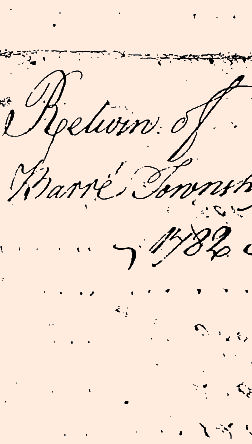 Return of
Barré Townsh
1782